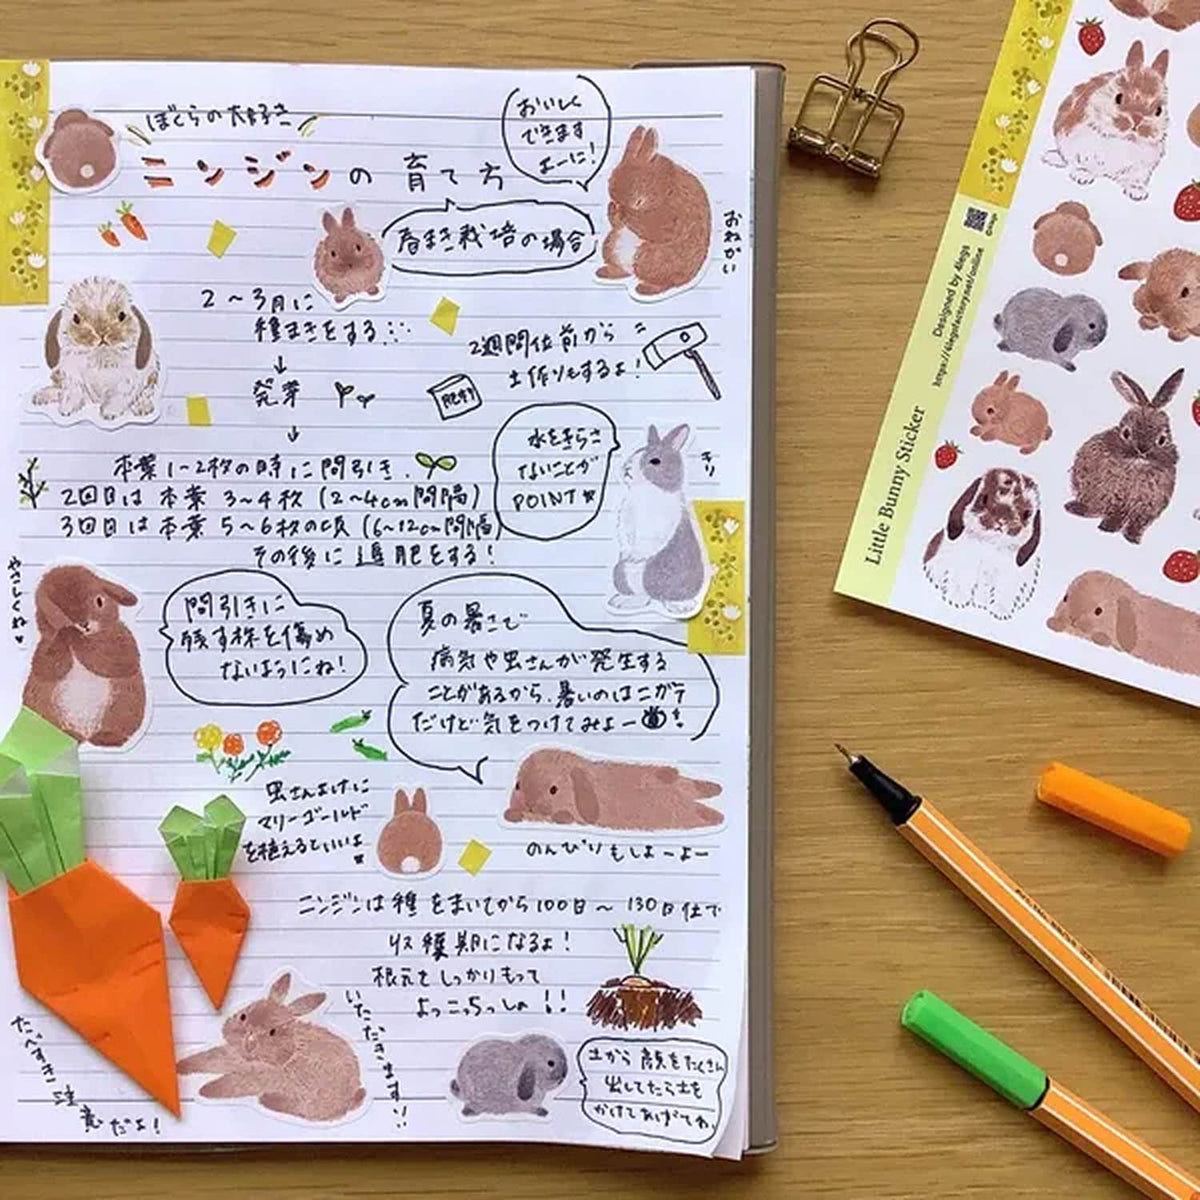 ぼくらの大好き
ニンジンの育て方
おいしく
できます
よーに!
おねがい
春まき栽培の場合
2〜3月に
種まきをする
↓
発芽
↓
2週間位前から
土作りもするよ!
肥料
本葉1〜2枚の時に間引き.
2回目は本葉3〜4枚(2〜4cm間隔)
3回目は本葉5〜6枚の頃(6〜12cm間隔)
その後に追肥をする!
水をきらさ
ないことが
POINT
キリ
やさしくね♥
間引きに
残す株を傷め
ないようにね!
夏の暑さで
病気や虫さんが発生する
ことがあるから、暑いのはニガテ
だけど気をつけてみよー
のんびりもしよーよー
虫さんよけに
マリーゴールド
を植えるといいよ
ニンジンは種をまいてから100日〜130日位で
収穫期になるよ!
根元をしっかりもって
よっこらっしょ!!
いただきます
たべすぎ注意だよ!
土から顔をたくさん
出してたら土を
かけてあげてね
Little Bunny Sticker
Designed by 4legs
https://4legsfactory.net/online